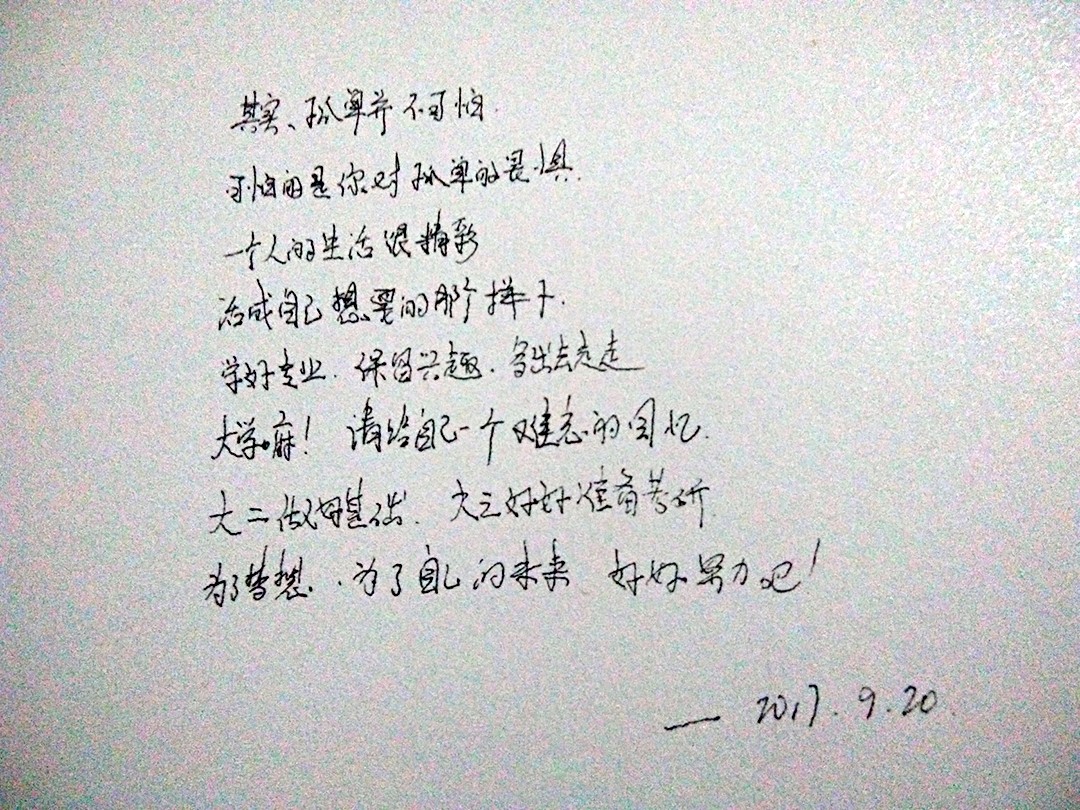 其实、孤单并不可怕.
可怕的是你对孤单的畏惧.
一个人的生活很精彩
活成自己想要的那个样子.
学好专业.保留兴趣.多出去走走
大学嘛!请给自己一个难忘的回忆.
大二做好基础.大三好好准备考研.
为了梦想.为了自己的未来 好好努力吧!
— 2017.9.20.